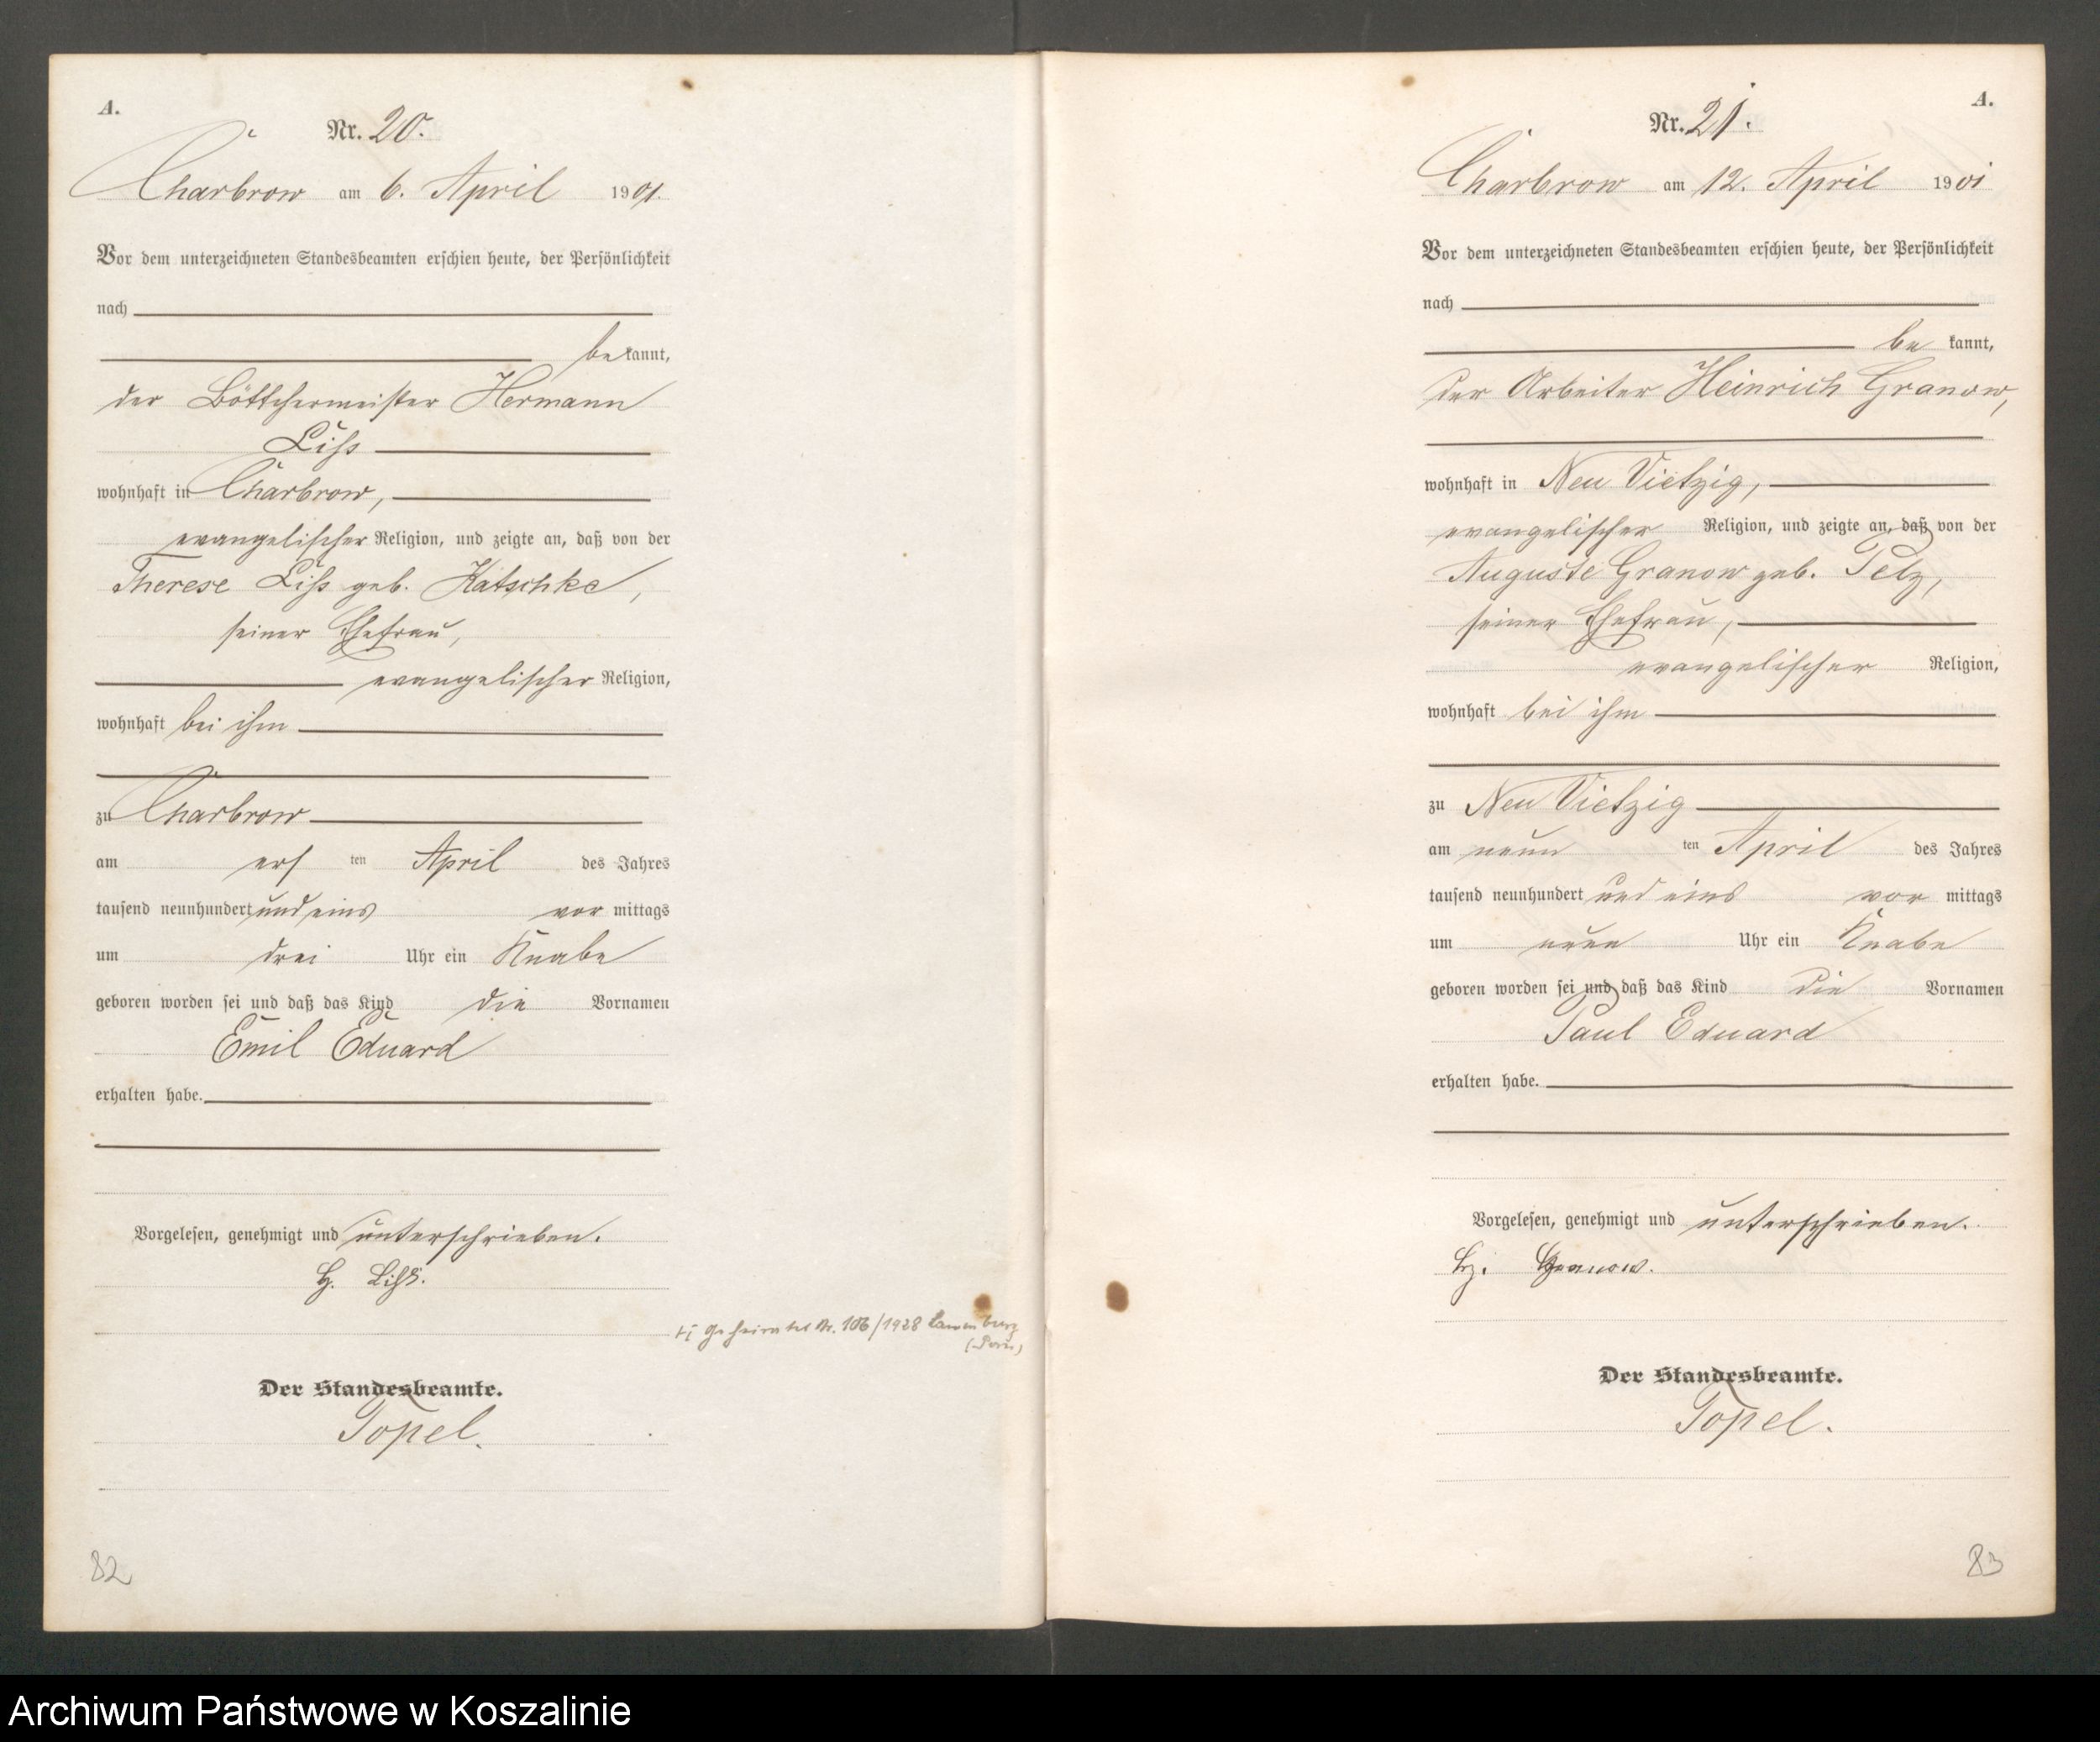 A.
Nr. 20.
Charbrow am 6. April 1901.
Vor dem unterzeichneten Standesbeamten erschien heute, der Persönlichkeit
nach
bekannt,
der Böttchermeister Hermann
Liss
wohnhaft in Charbrow,
evangelischer Religion, und zeigte an, daß von der
Therese Liss geb. Katschke,
seiner Ehefrau,
evangelischer Religion,
wohnhaft bei ihm
zu Charbrow
am ersten April des Jahres
tausend neunhundert und eins vormittags
um drei Uhr ein Knabe
geboren worden sei und daß das Kind die Vornamen
Emil Eduard
erhalten habe.
Vorgelesen, genehmigt und unterschrieben.
H. Liss.
Geheiratet Nr. 106/1928 Lauenburg
(Pom)
Der Standesbeamte.
Topel.
82
A.
Nr. 21.
Charbrow am 12. April 1901
Vor dem unterzeichneten Standesbeamten erschien heute, der Persönlichkeit
nach
bekannt,
der Arbeiter Heinrich Granow,
wohnhaft in Neu Vietzig,
evangelischer Religion, und zeigte an, daß von der
Auguste Granow geb. Pelz,
seiner Ehefrau,
evangelischer Religion,
wohnhaft bei ihm
zu Neu Vietzig
am neunten April des Jahres
tausend neunhundert und eins vormittags
um neun Uhr ein Knabe
geboren worden sei und daß das Kind die Vornamen
Paul Eduard
erhalten habe.
Vorgelesen, genehmigt und unterschrieben.
Granow.
Der Standesbeamte.
Topel.
83
Archiwum Państwowe w Koszalinie